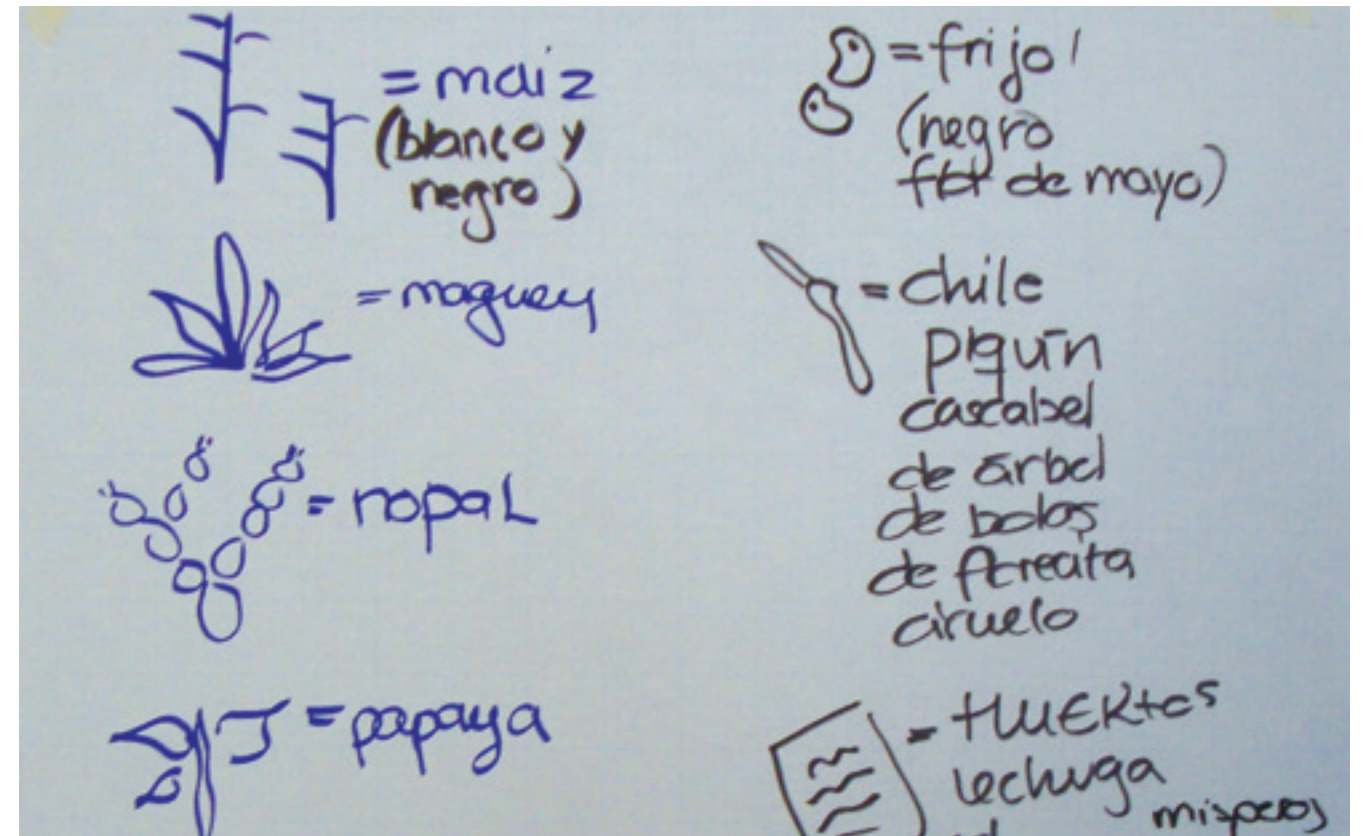 = maiz
(blanco y
negro)
= maguey
= nopal
= papaya
= frijol
(negro
de mayo)
= chile
piquín
cascabel
de árbol
de bolas
de
ciruelo
= HUERtos
lechuga
misperos